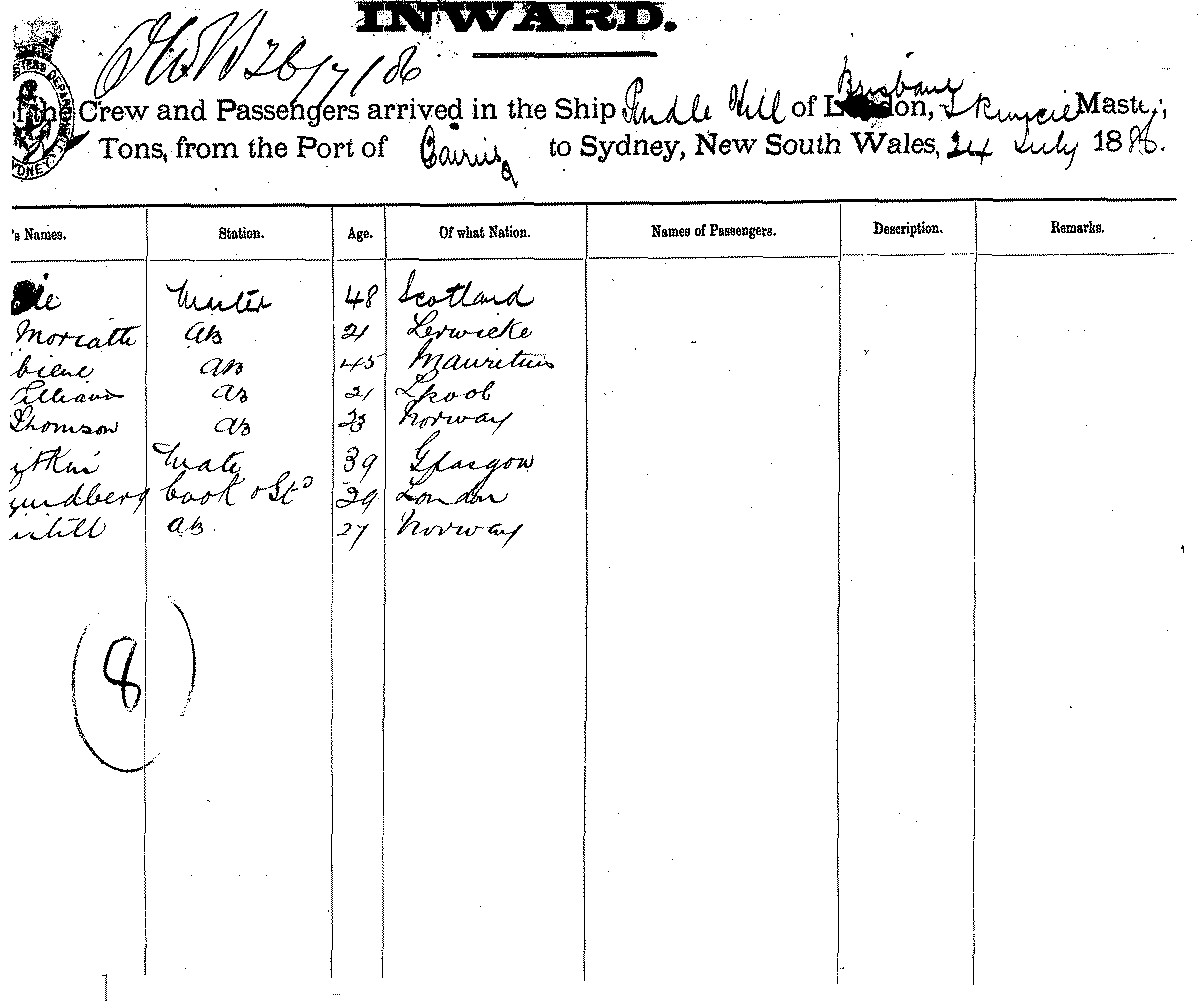 INWARD.
26/7/86
of the Crew and Passengers arrived in the Ship Pendle Hill of Brisbane, Master,
Tons, from the Port of Cairns to Sydney, New South Wales, 24 July 1886.
's Names. Station. Age. Of what Nation. Names of Passengers. Description. Remarks.
Master 48 Scotland
Moriatti AB 21 Lerwicke
biene AB 45 Mauritius
Lilliams AB 21 Lpool
Thomson AB 23 Norway
Mate 39 Glasgow
undberg Cook & Std 29 London
AB 27 Norway
8